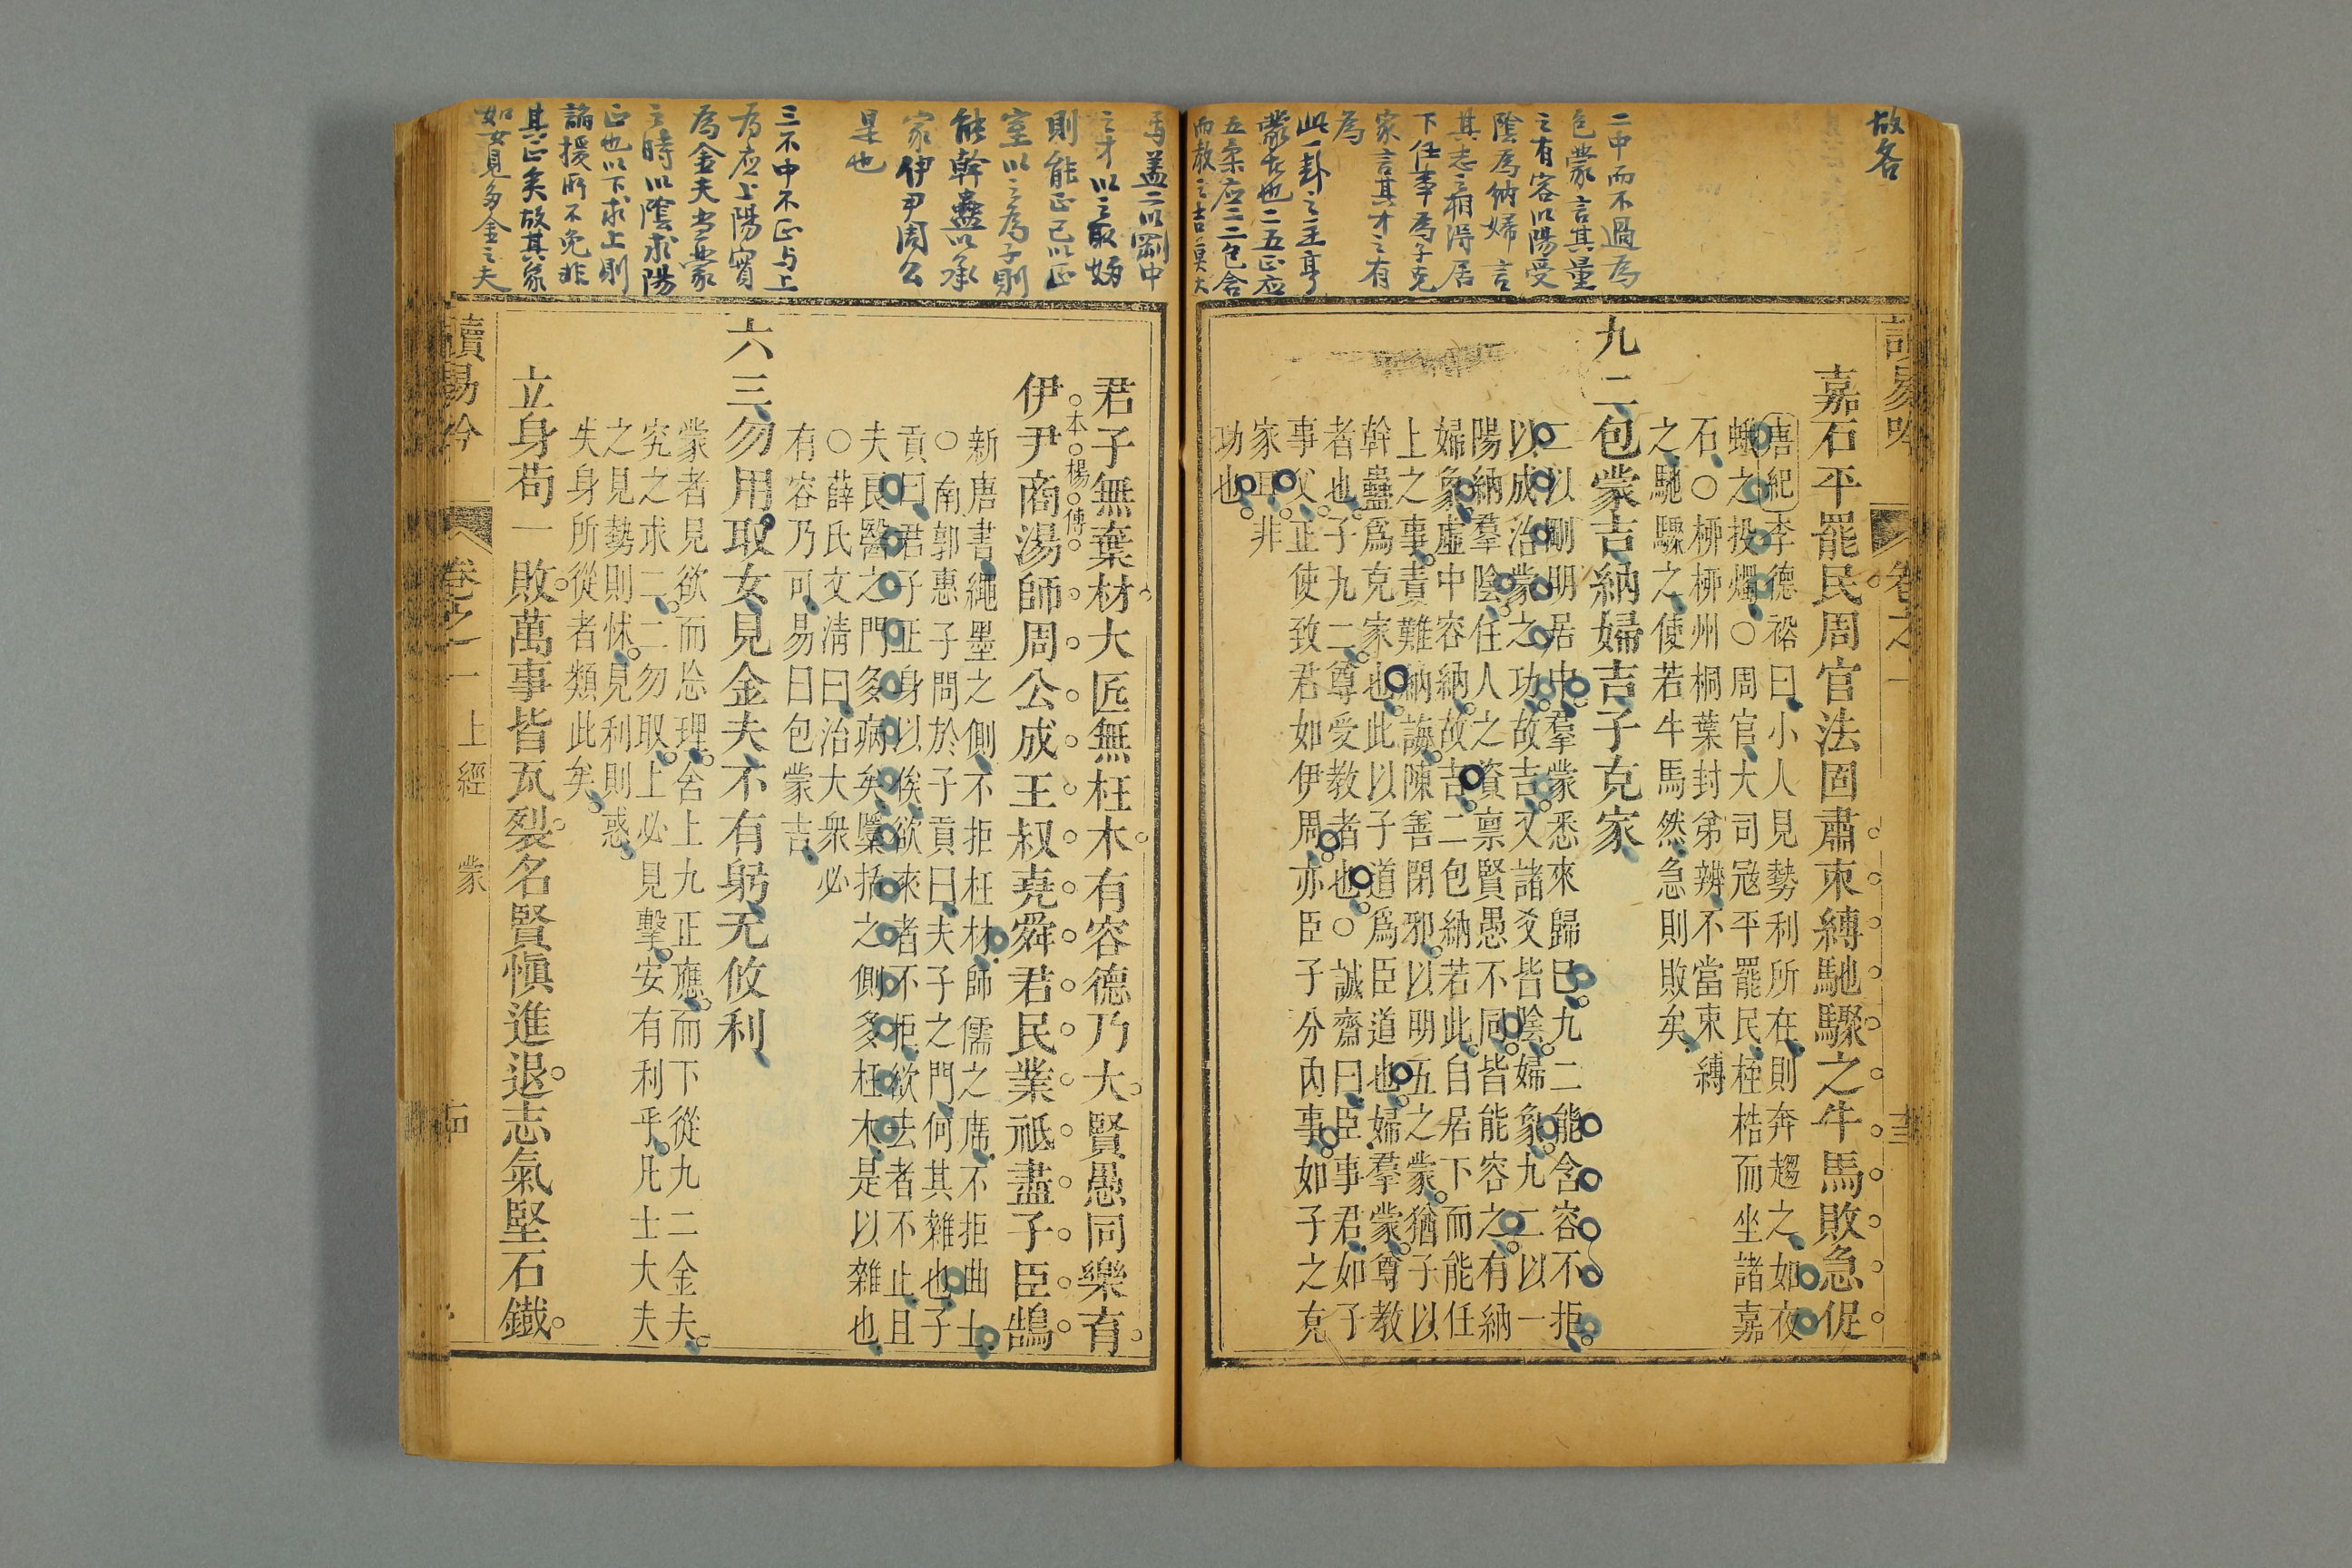 故吝
二中而不過為
包蒙言其量
之有容以陽受
陰為納婦言
其志之相得居
下任事為子克
家言其才之有
為
此一卦之主卦
蒙者也二五正应
五柔应二二包含
嘉石平罷民周官法固肅束縛馳驟之牛馬敗急促
唐紀李德裕曰小人見勢利所在則奔趨之如夜
蛾之投燭○周官大司冦平罷民桎梏而坐諸嘉
石○柳柳州桐葉封弟辨不當束縛
之馳驟之使若牛馬然急則敗矣
九二包蒙吉納婦吉子克家
二以剛明居中羣蒙悉來歸已九二能含容不拒
以成治蒙之功故吉又諸爻皆陰婦象九二以一
陽納羣陰住人之資禀賢愚不同皆能容之有納
婦象虛中容納故吉二包納若此自居下而能任
上之事責難納誨陳善閉邪以明五之蒙猶子以
幹蠱爲克家也此以子道爲臣道也婦羣蒙尊教
者也子九二尊受教者也○誠齋曰臣事君如子
事父正使致君如伊周亦臣子分內事如子之克
家正非
功也
馬蓋二以剛中
之才以之取婦
則能正己以正
室以之為子則
能幹蠱以承
家伊尹周公
是也
三不中不正与上
为应上陽實
為金夫当蒙
之時以陰求陽
正也以下求上則
諂援所不免非
其正矣故其象
如女見多金之夫
君子無棄材大匠無枉木有容德乃大賢愚同樂育
○本○楊○傳○
伊尹商湯師周公成王叔堯舜君民業祗盡子臣鵠
新唐書繩墨之側不拒枉材師儒之席不拒曲士
○南郭惠子問於子貢曰夫子之門何其雜也子
貢曰君子正身以俟欲來者不拒欲去者不止且
夫良醫之門多病矣檃括之側多枉木是以雜也
○薛氏文淸曰治大衆必
有容乃可易曰包蒙吉
六三勿用取女見金夫不有躬无攸利
蒙者見欲而忿理舍上九正應而下從九二金夫
究之求二二勿取上必見擊安有利乎凡士大夫
之見勢則怵見利則惑
失身所從者類此矣
立身苟一敗萬事皆瓦裂名賢愼進退志氣堅石鐵
讀易吟 卷之一 上經 蒙 十四